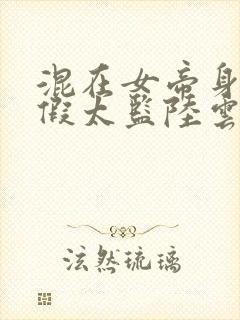 混在女帝身
假太監陸雲
泫然琉璃